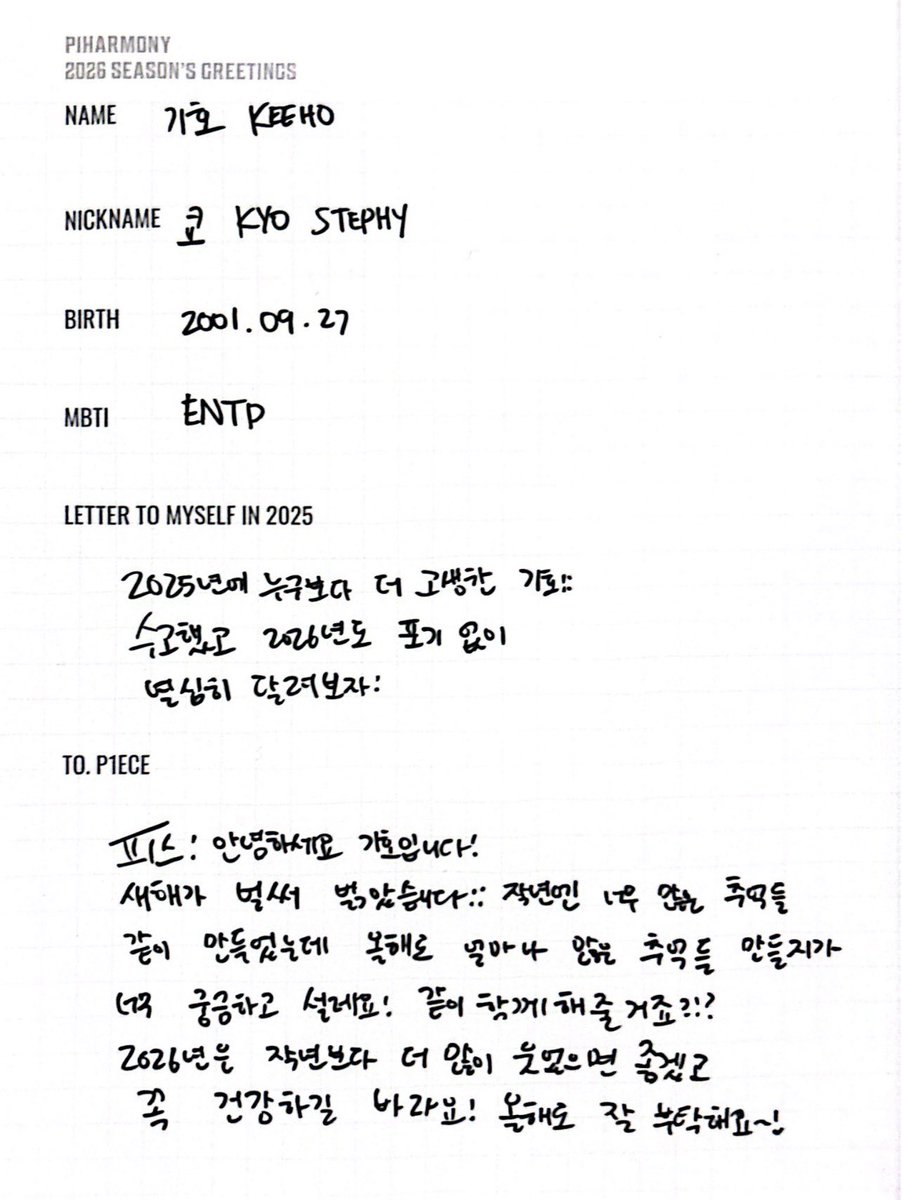 P1HARMONY
2026 SEASON'S GREETINGS
NAME 기호 KEEHO
NICKNAME 쿄 KYO STEPHY
BIRTH 2001.09.27
MBTI ENTP
LETTER TO MYSELF IN 2025
2025년에 누구보다 더 고생한 기호!!
수고했고 2026년도 포기 없이
열심히 달려보자!
TO. P1ECE
피스! 안녕하세요 기호입니다!
새해가 벌써 밝았습니다!! 작년엔 너무 많은 추억들
같이 만들었는데 올해도 얼마나 많은 추억들 만들지가
너무 궁금하고 설레요! 같이 함께 해줄 거죠?!?
2026년은 작년보다 더 많이 웃었으면 좋겠고
꼭 건강하길 바라요! 올해도 잘 부탁해요~!